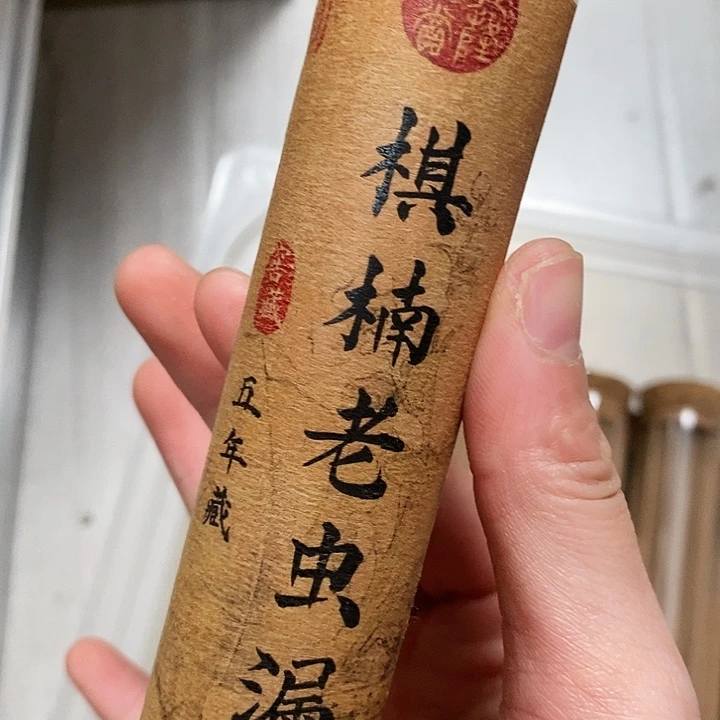 棋楠老虫漏
五年藏